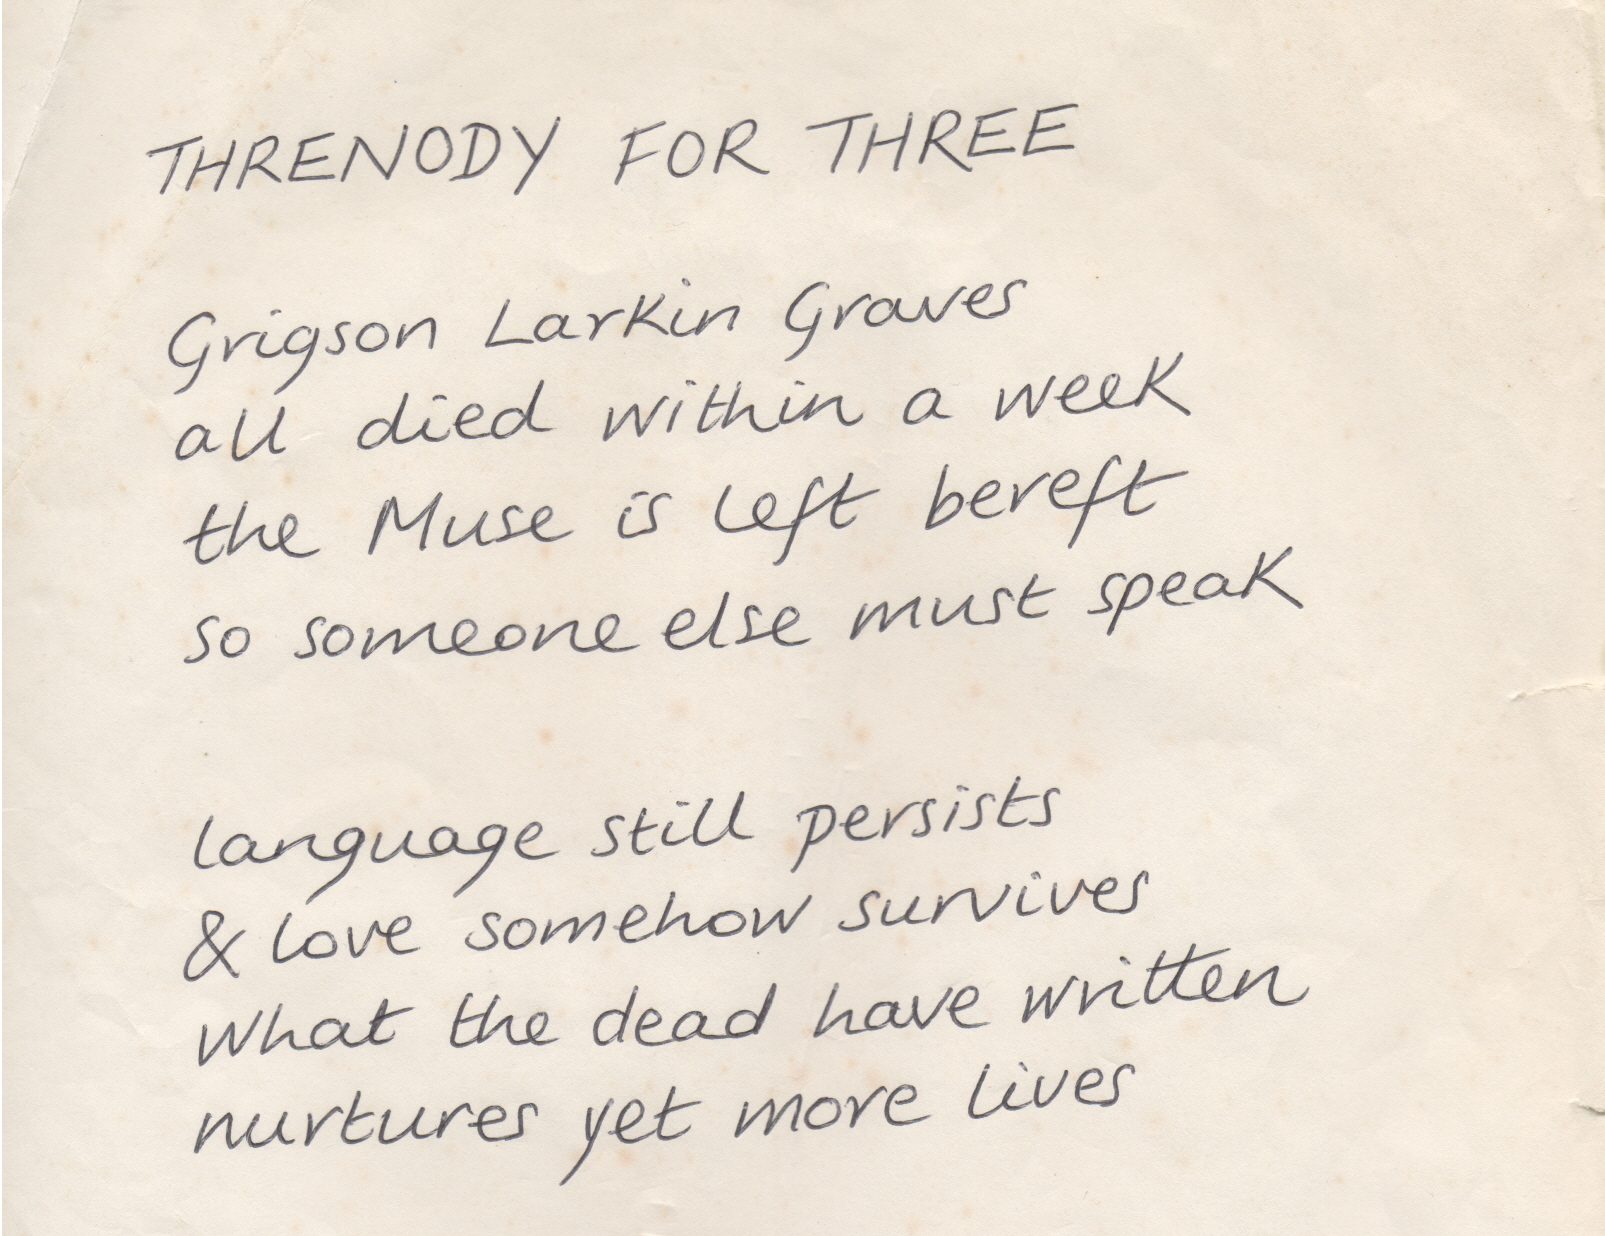 THRENODY FOR THREE
Grigson Larkin Graves
all died within a week
the Muse is left bereft
so someone else must speak
language still persists
& love somehow survives
what the dead have written
nurtures yet more lives